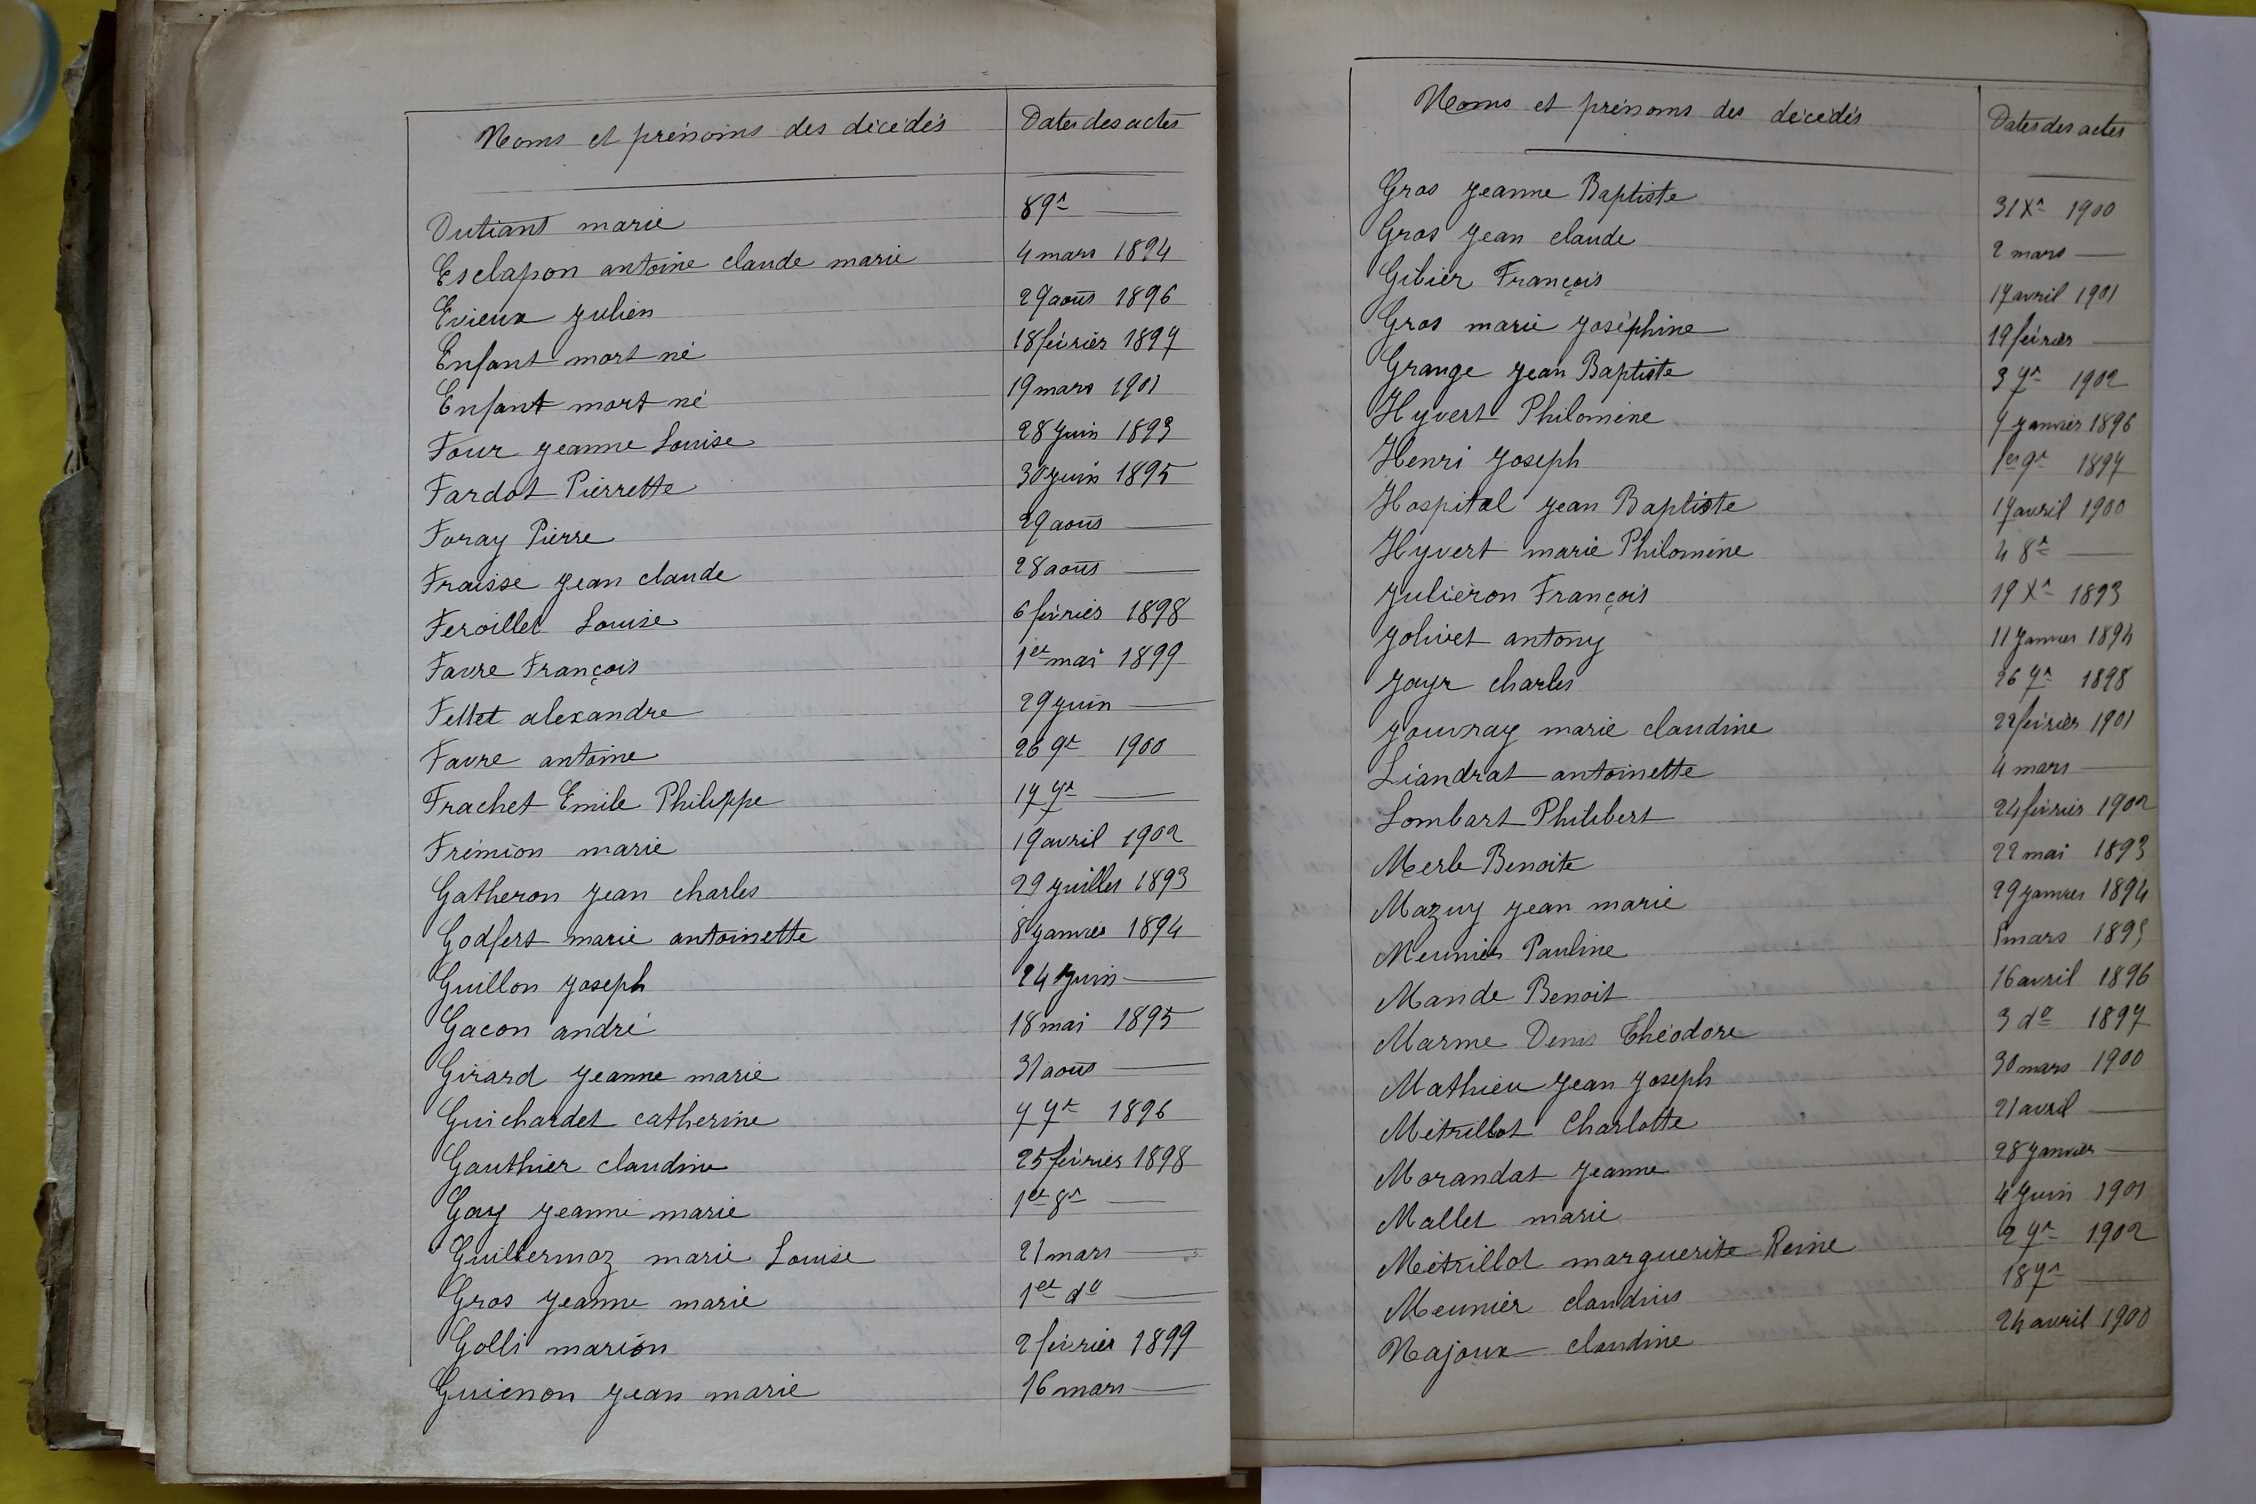 Noms et prénoms des décédés Dates des actes
Dutiant marie 8 9re —
Esclapon antoine claude marie 4 mars 1894
Evieux Julien 29 août 1896
Enfant mort né 18 février 1897
Enfant mort né 19 mars 1901
Four Jeanne Louise 28 Juin 1893
Fardot Pierrette 30 juin 1895
Foray Pierre 29 août —
Fraisse Jean claude 28 août —
Feroillet Louise 6 février 1898
Favre François 1er mai 1899
Fettet alexandre 29 juin —
Favre antoine 26 9re 1900
Frachet Emile Philippe 17 7re —
Frémion marie 19 avril 1902
Gatheron Jean charles 29 juillet 1893
Godfert marie antoinette 8 janvier 1894
Guillon Joseph 24 Juin —
Gacon andré 18 mai 1895
Girard Jeanne marie 31 août —
Guichardet catherine 7 7re 1896
Gauthier claudine 25 février 1898
Gay Jeanne marie 1er 8re —
Guillermoz marie Louise 21 mars —
Gros Jeanne marie 1er do —
Golli marion 2 février 1899
Guienon Jean marie 16 mars —
Noms et prénoms des décédés Dates des actes
Gros Jeanne Baptiste 31 Xre 1900
Gros Jean claude 2 mars —
Gibier François 17 avril 1901
Gros marie Joséphine 19 février —
Grange Jean Baptiste 3 7re 1902
Hyvert Philomène 7 Janvier 1896
Henri Joseph 1er 9re 1897
Hospital Jean Baptiste 17 avril 1900
Hyvert marie Philomène 4 8re —
Julieron François 19 Xre 1893
Jolivet antony 11 Janvier 1894
Jayr charles 26 7re 1898
Jouvray marie claudine 22 février 1901
Liandrat antoinette 4 mars —
Lombart Philibert 24 février 1902
Merle Benoite 22 mai 1893
Mazuy Jean marie 29 janvier 1894
Meunier Pauline mars 1895
Mande Benoit 16 avril 1896
Marme Denis Théodore 3 do 1897
Mathieu Jean Joseph 30 mars 1900
Métrillot Charlotte 21 avril —
Morandat Jeanne 28 Janvier —
Mallet marie 4 Juin 1901
Métrillot marguerite Reine 2 7re 1902
Meunier claudius 18 7re —
Najoux claudine 24 avril 1900